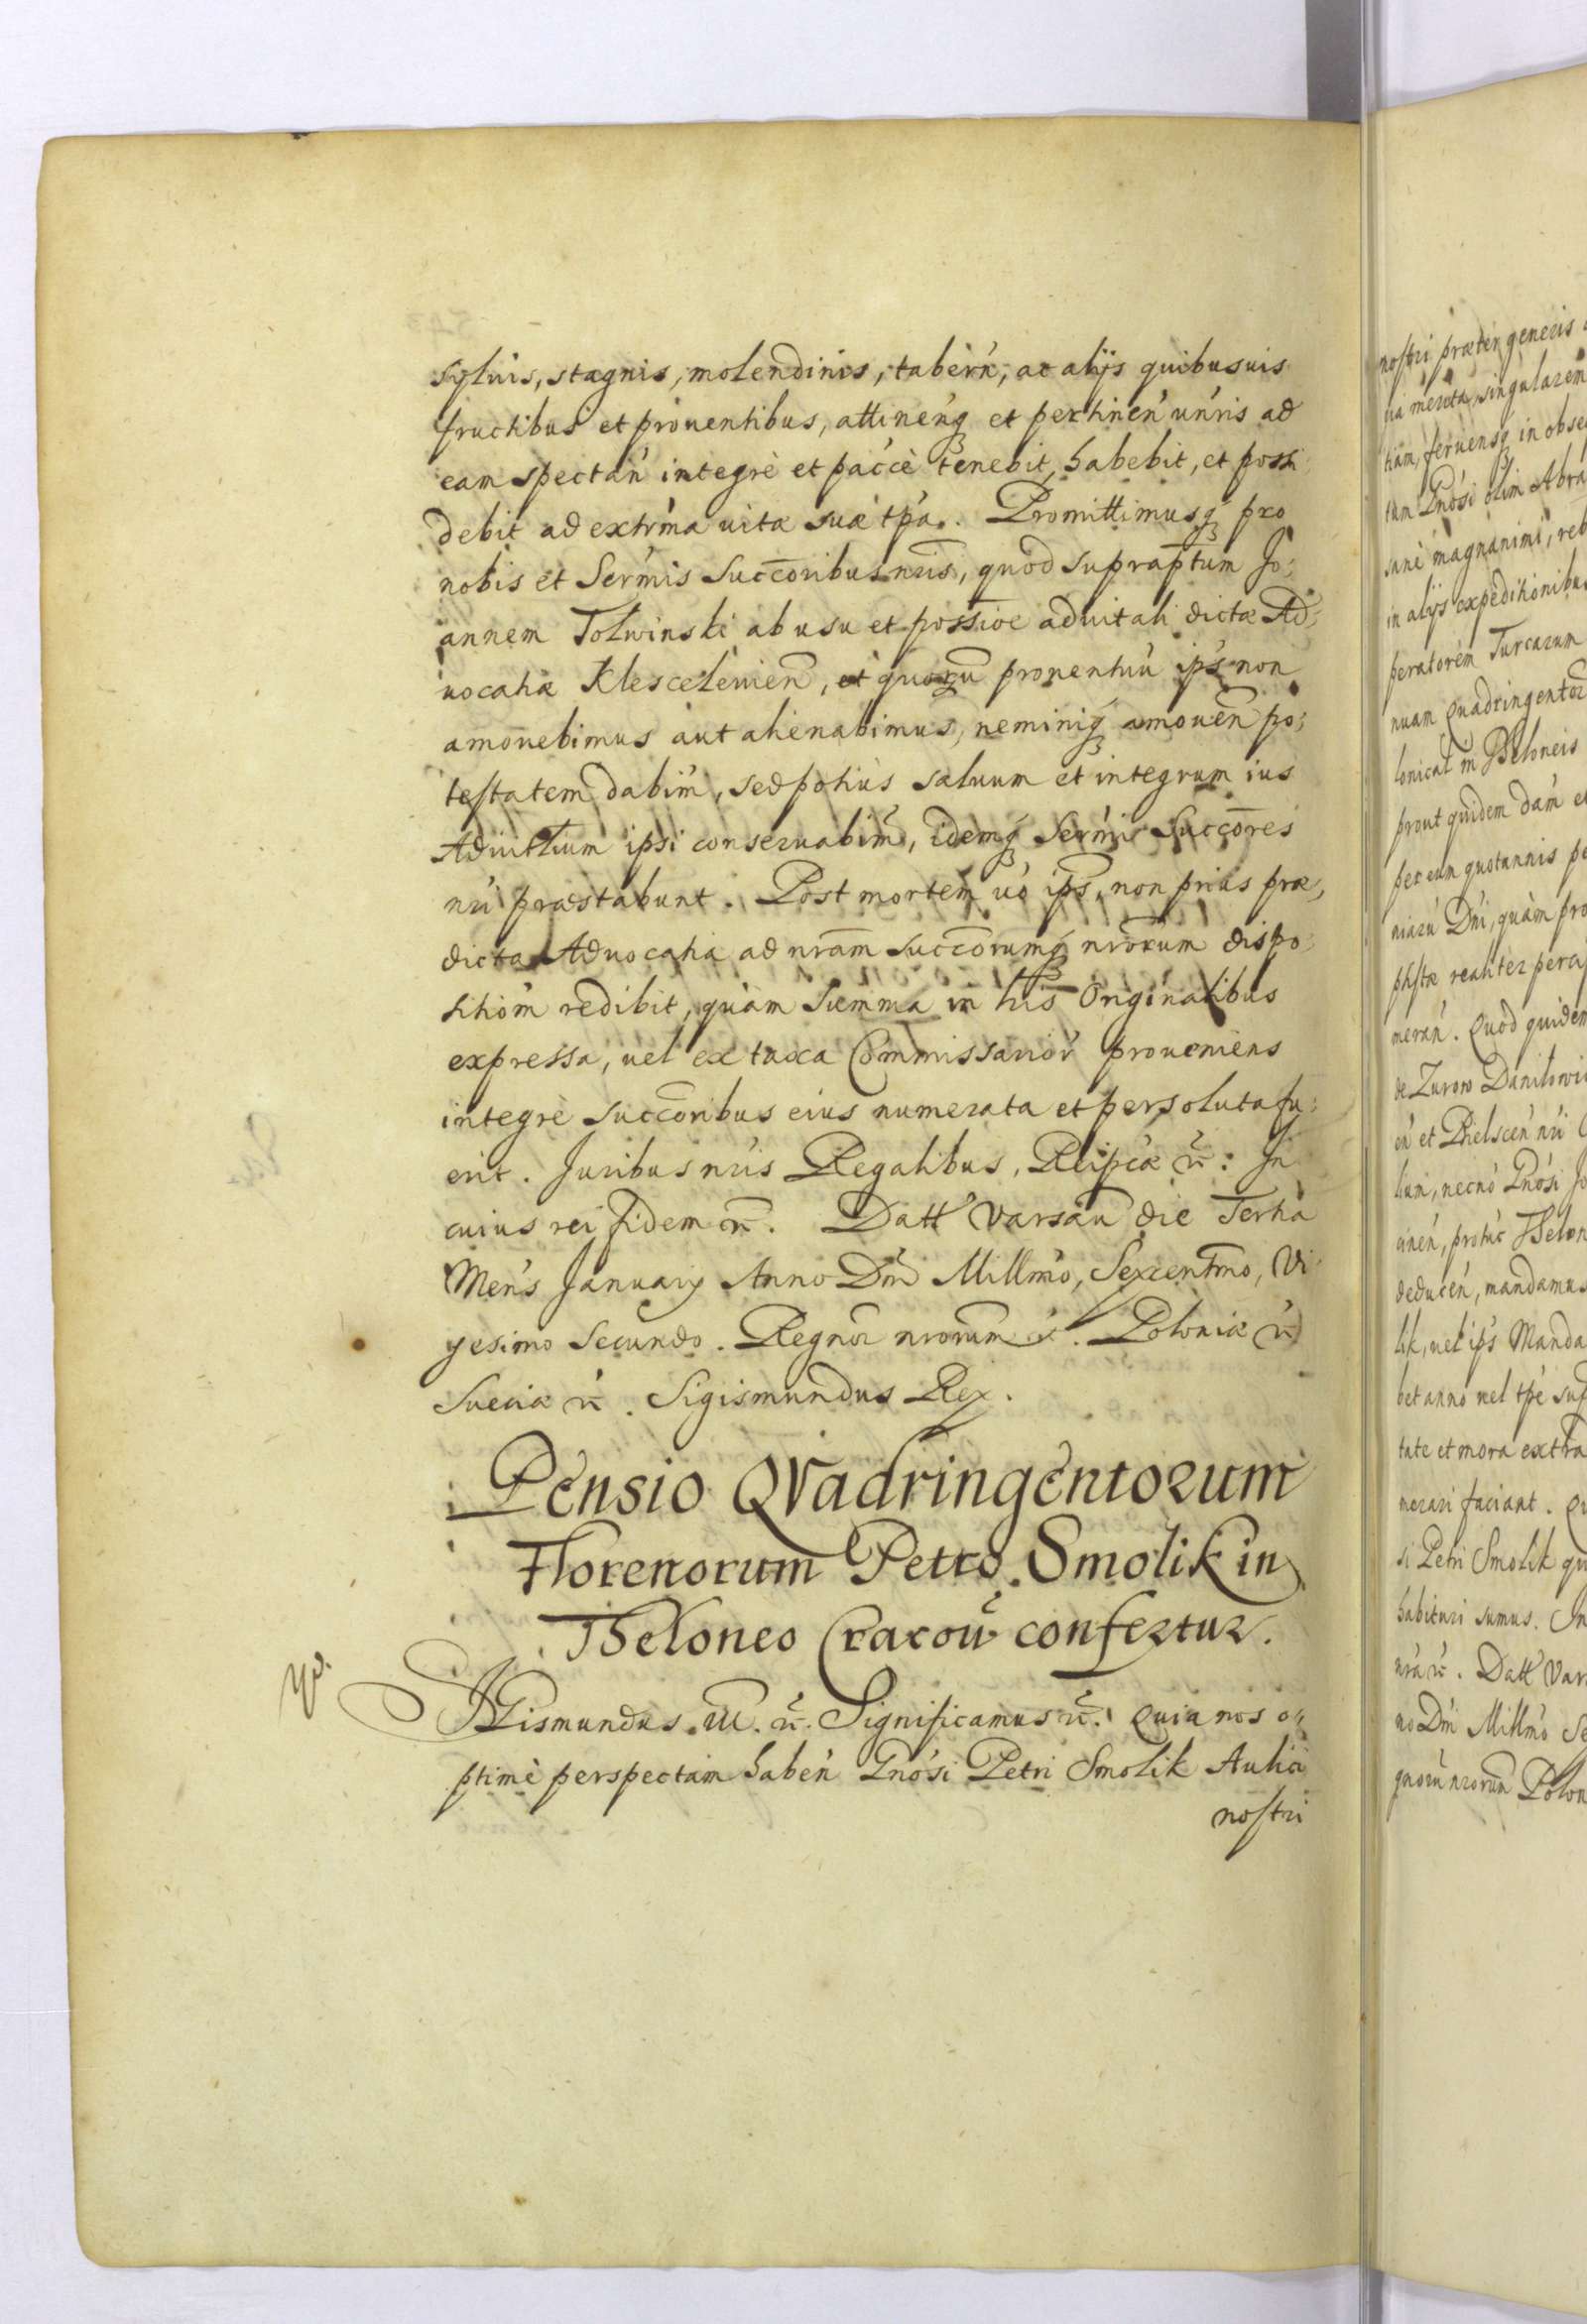 syluis, stagnis, molendinis, tabern, ac alijs quibusuis
fructibus et prouentibus, attinenq3 et pertinen unris ad
eam spectan integrè et paccè tenebit, habebit, et possi
debit ad extrma uitæ suæ tpa. Promittimusq3 pro
nobis et Sermis Succoribus nris, quod supraptum Jo:
annem Tolwinski ab usu et possioe aduitali dictæ Ad:
uocatiæ Klescelenien, et quorū prouentuū ips non
amouebimus aut alienabimus, neminiq3 amouen po:
testatem dabim, sed potiùs saluum et integrum ius
Aduitltium ipsi conseruabim, idemq3 Sermi Succores
nri præstabunt. Post mortem uo ips, non priùs præ,
dicta Aduocatia ad nram succorumq3 nrorum dispo:
sitiom redibit, quàm Summa in his Originalibus
expressa, uel ex taxa Commissarior proueniens
integrè succoribus eius numerata et persoluta fu:
erit. Juribus nris Regalibus, Reipcæ &: In
cuius rei fidem &. Datt Varsau die Tertia
Mens January Anno Dni Millmo, Sexcentmo, Vi
gesimo Secundo. Regnor nrorum &. Poloniæ &
Sueciæ &. Sigismundus Rex.
Pensio QVadringentorum
Florenorum Petro Smolik in
Theloneo Cracou confertur.
SIGismundus III. &. Significamus &. Quia nos o„
ptimè perspectam haben Gnosi Petri Smolik Aulici
nostri
nostri præter generis
ua merita, singularem
tiam, feruensq3 in obse
tum Gnosi olim Abra
sanè magnanimi, reb
in alijs expeditionibu
peratorem Turcarum
nuam Quadringentor
lonical in Theloneis
prout quidem dam et
per eum quotannis pe
niarū Dni, quàm pro
phstæ realiter percip
meran. Quod quidem
de Zurow Danilowi
en et Bielscen nri C
lium, necno Gnosi Jo
cinen, protuc Thelon
deducen, mandamus
lik, uel ips Manda
bet anno uel tpe sup
tate et mora extra
merari faciant. Qu
si Petri Smolik qu
habituri sumus. In
nra &. Datt Var
no Dni Millmo Se
gnorū nrorum Polon